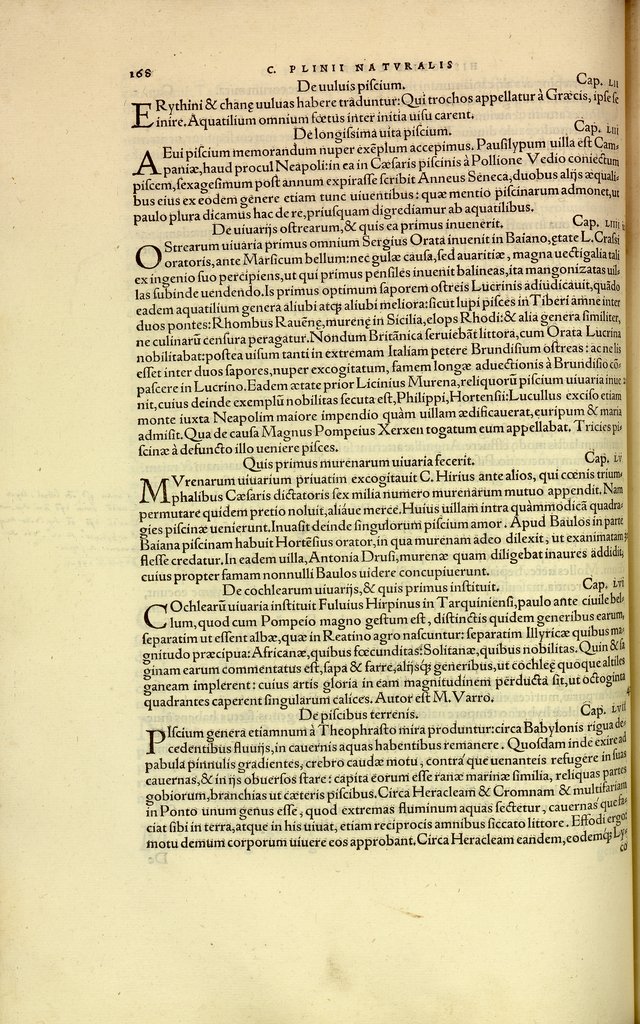 168 C. PLINII NATVRALIS
De uuluis piſcium. Cap. LII
ERythini & chanę uuluas habere traduntur: Qui trochos appellatur à Græcis, ipſe ſe
inire. Aquatilium omnium fœtus inter initia uiſu carent.
De longiſsima uita piſcium. Cap. LIII
AEui piſcium memorandum nuper exẽplum accepimus. Pauſilypum uilla eſt Cam-
paniæ, haud procul Neapoli: in ea in Cæſaris piſcinis à Pollione Vedio coniectum
piſcem, ſexageſimum poſt annum expiraſſe ſcribit Anneus Seneca, duobus alijs æquali-
bus eius ex eodem genere etiam tunc uiuentibus: quæ mentio piſcinarum admonet, ut
paulo plura dicamus hac de re, priuſquam digrediamur ab aquatilibus.
De uiuarijs oſtrearum, & quis ea primus inuenerit. Cap. LIIII
OStrearum uiuaria primus omnium Sergius Orata inuenit in Baiano, ętate L. Craſsi
oratoris, ante Marſicum bellum: nec gulæ cauſa, ſed auaritiæ, magna uectigalia tali
ex ingenio ſuo percipiens, ut qui primus penſiles inuenit balineas, ita mangonizatas uil-
las ſubinde uendendo. Is primus optimum ſaporem oſtreis Lucrinis adiudicauit, quãdo
eadem aquatilium genera aliubi atq; aliubi meliora: ſicut lupi piſces in Tiberi amne inter
duos pontes: Rhombus Rauẽnę, murenę in Sicilia, elops Rhodi: & alia genera ſimiliter,
ne culinarũ cenſura peragatur. Nondum Britãnica ſeruiebãt littora, cum Orata Lucrina
nobilitabat: poſtea uiſum tanti in extremam Italiam petere Brundiſium oſtreas: ac ne lis
eſſet inter duos ſapores, nuper excogitatum, famem longæ aduectionis à Brundiſio cõ-
paſcere in Lucrino. Eadem ætate prior Licinius Murena, reliquorũ piſcium uiuaria inue-
nit, cuius deinde exemplũ nobilitas ſecuta eſt, Philippi, Hortenſii: Lucullus exciſo etiam
monte iuxta Neapolim maiore impendio quàm uillam ædificauerat, euripum & maria
admiſit. Qua de cauſa Magnus Pompeius Xerxen togatum eum appellabat. Tricies pi-
ſcinæ à defuncto illo ueniere piſces.
Quis primus murenarum uiuaria fecerit. Cap. LV
MVrenarum uiuarium priuatim excogitauit C. Hirius ante alios, qui cœnis trium-
phalibus Cæſaris dictatoris ſex milia numero murenarum mutuo appendit. Nam
permutare quidem pretio noluit, aliáue merce. Huius uillam intra quàm modicã quadra-
gies piſcinæ uenierunt. Inuaſit deinde ſingulorum piſcium amor. Apud Baulos in parte
Baiana piſcinam habuit Hortẽſius orator, in qua murenam adeo dilexit, ut exanimatam
fleſſe credatur. In eadem uilla, Antonia Druſi, murenæ quam diligebat inaures addidit,
cuius propter famam nonnulli Baulos uidere concupiuerunt.
De cochlearum uiuarijs, & quis primus inſtituit. Cap. LVI
COchlearũ uiuaria inſtituit Fuluius Hirpinus in Tarquinienſi, paulo ante ciuile bel-
lum, quod cum Pompeio magno geſtum eſt, diſtinctis quidem generibus earum,
ſeparatim ut eſſent albæ, quæ in Reatino agro naſcuntur: ſeparatim Illyricæ quibus ma-
gnitudo præcipua: Africanæ, quibus fœcunditas: Solitanæ, quibus nobilitas. Quin & ſa
ginam earum commentatus eſt, ſapa & farre, alijsq́; generibus, ut cochleę quoque altiles
ganeam implerent: cuius artis gloria in eam magnitudinem perducta ſit, ut octoginta
quadrantes caperent ſingularum calices. Autor eſt M. Varro.
De piſcibus terrenis. Cap. LVII
PIſcium genera etiamnum à Theophraſto mira produntur: circa Babylonis rigua de-
cedentibus fluuijs, in cauernis aquas habentibus remanere. Quoſdam inde exire ad
pabula pinnulis gradientes, crebro caudæ motu, contra que uenanteis refugere in ſuas
cauernas, & in ijs obuerſos ſtare: capita eorum eſſe ranæ marinæ ſimilia, reliquas partes
gobiorum, branchias ut cæteris piſcibus. Circa Heracleam & Cromnam & multifariam
in Ponto unum genus eſſe, quod extremas fluminum aquas ſectetur, cauernas que fa-
ciat ſibi in terra, atque in his uiuat, etiam reciprocis amnibus ſiccato littore. Effodi ergo
motu demum corporum uiuere eos approbant. Circa Heracleam eandem, eodemq́; Ly-
co